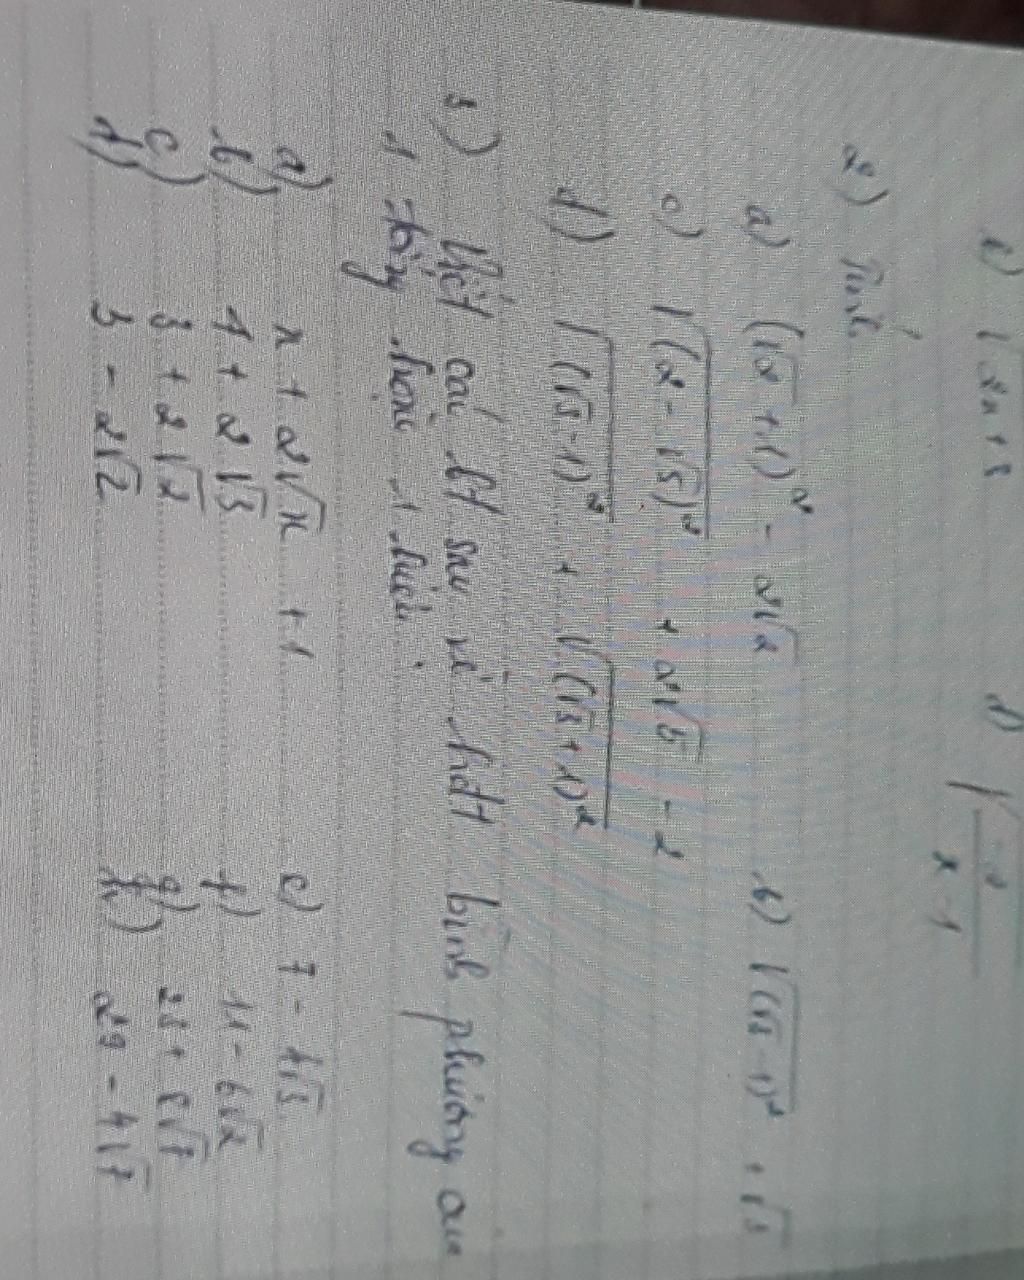 c) √2x+8 d) √(-2/(x-1))
2) Tính
a) (√2 + 1)² - 2√2 b) √(√3 - 1)² + √3
c) √(2 - √5)² + 2√5 - 2
d) √(√3 - 1)² + √(√3 + 1)²
3) Viết các bt sau về bình phương của
1 tổng hoặc 1 hiệu
a) x + 2√x + 1 e) 7 - 4√3
b) 4 + 2√3 f) 11 - 6√2
c) 3 + 2√2 g) 23 + 8√7
d) 3 - 2√2 h) 29 - 4√7